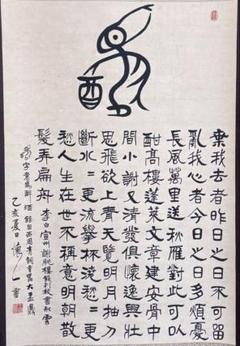 棄我去者昨日之日不可留
亂我心者今日之日多煩憂
長風萬里送秋雁對此可以
酣高樓蓬萊文章建安骨中
間小謝又清發俱懷逸興壯
思飛欲上青天覽明月抽刀
斷水〻更流舉杯消愁〻更
愁人生在世不稱意明朝散
髮弄扁舟 李白宣州謝朓樓餞別校書叔雲
乙亥夏日